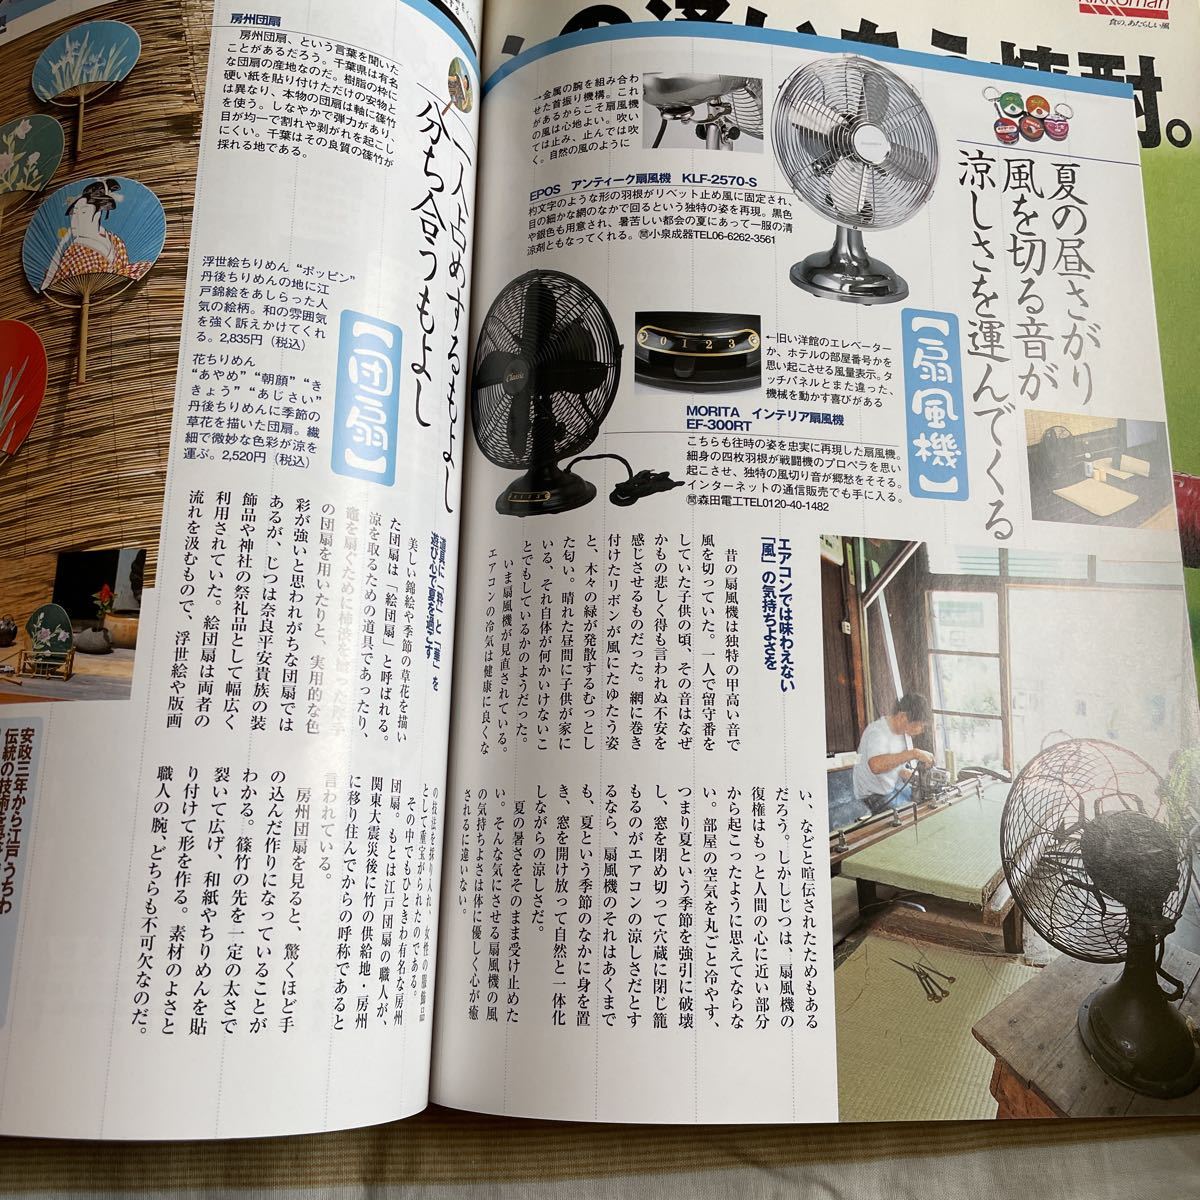 Kikkoman
食の、あたらしい風
夏の昼さがり
風を切る音が
涼しさを運んでくる
【扇風機】
→金属の腕を組み合わ
せた首振り機構。これ
があるからこそ扇風機
の風は心地よい。吹い
ては止み、止んでは吹
く。自然の風のように
EPOS アンティーク扇風機 KLF-2570-S
杓文字のような形の羽根がリベット止め風に固定され、
目の細かな網のなかで回るという独特の姿を再現。黒色
や銀色も用意され、暑苦しい都会の夏にあって一服の清
涼剤ともなってくれる。㉄小泉成器TEL06-6262-3561
Classic
0 1 2 3
←旧い洋館のエレベーター
か、ホテルの部屋番号かを
思い起こさせる風量表示。タ
ッチパネルとまた違った、
機械を動かす喜びがある
MORITA インテリア扇風機
EF-300RT
こちらも往時の姿を忠実に再現した扇風機。
細身の四枚羽根が戦闘機のプロペラを思い
起こさせ、独特の風切り音が郷愁をそそる。
インターネットの通信販売でも手に入る。
㉄森田電工TEL0120-40-1482
エアコンでは味わえない
「風」の気持ちよさを
昔の扇風機は独特の甲高い音で
風を切っていた。一人で留守番を
していた子供の頃、その音はなぜ
かもの悲しく得も言われぬ不安を
感じさせるものだった。網に巻き
付けたリボンが風にたゆたう姿
と、木々の緑が発散するむっとし
た匂い。晴れた昼間に子供が家に
いる、それ自体が何かいけないこ
とでもしているかのようだった。
いま扇風機が見直されている。
エアコンの冷気は健康に良くな
い、などと喧伝されたためもある
だろう。しかしじつは、扇風機の
復権はもっと人間の心に近い部分
から起こったように思えてならな
い。部屋の空気を丸ごと冷やす、
つまり夏という季節を強引に破壊
し、窓を閉め切って穴蔵に閉じ籠
もるのがエアコンの涼しさだとす
るなら、扇風機のそれはあくまで
も、夏という季節のなかに身を置
き、窓を開け放って自然と一体化
しながらの涼しさだ。
夏の暑さをそのまま受け止めた
い。そんな気にさせる扇風機の風
の気持ちよさは体に優しく心が癒
されるに違いない。
一人占めするもよし
分ち合うもよし
【団扇】
房州団扇
房州団扇、という言葉を聞いた
ことがあるだろう。千葉県は有名
な団扇の産地なのだ。樹脂の枠に
硬い紙を貼り付けただけの安物と
は異なり、本物の団扇は軸に篠竹
を使う。しなやかで弾力があり、
目が均一で割れや剥がれを起こし
にくい。千葉はその良質の篠竹が
採れる地である。
浮世絵ちりめん “ポッピン”
丹後ちりめんの地に江
戸錦絵をあしらった人
気の絵柄。和の雰囲気
を強く訴えかけてくれ
る。2,835円(税込)
花ちりめん
“あやめ”“朝顔”“き
きょう”“あじさい”
丹後ちりめんに季節の
草花を描いた団扇。繊
細で微妙な色彩が涼を
運ぶ。2,520円(税込)
遊び心で夏を過ごす
美しい錦絵や季節の草花を描い
た団扇は「絵団扇」と呼ばれる。
涼を取るための道具であったり、
の団扇を用いたりと、実用的な色
彩が強いと思われがちな団扇では
あるが、じつは奈良平安貴族の装
飾品や神社の祭礼品として幅広く
利用されていた。絵団扇は両者の
流れを汲むもので、浮世絵や版画
の技法を採り入れ、女性の服飾品
として重宝がられたのである。
その中でもひときわ有名な房州
団扇。もとは江戸団扇の職人が、
関東大震災後に竹の供給地・房州
に移り住んでからの呼称であると
言われている。
房州団扇を見ると、驚くほど手
の込んだ作りになっていることが
わかる。篠竹の先を一定の太さで
裂いて広げ、和紙やちりめんを貼
り付けて形を作る。素材のよさと
職人の腕、どちらも不可欠なのだ。
安政三年から江戸うちわ